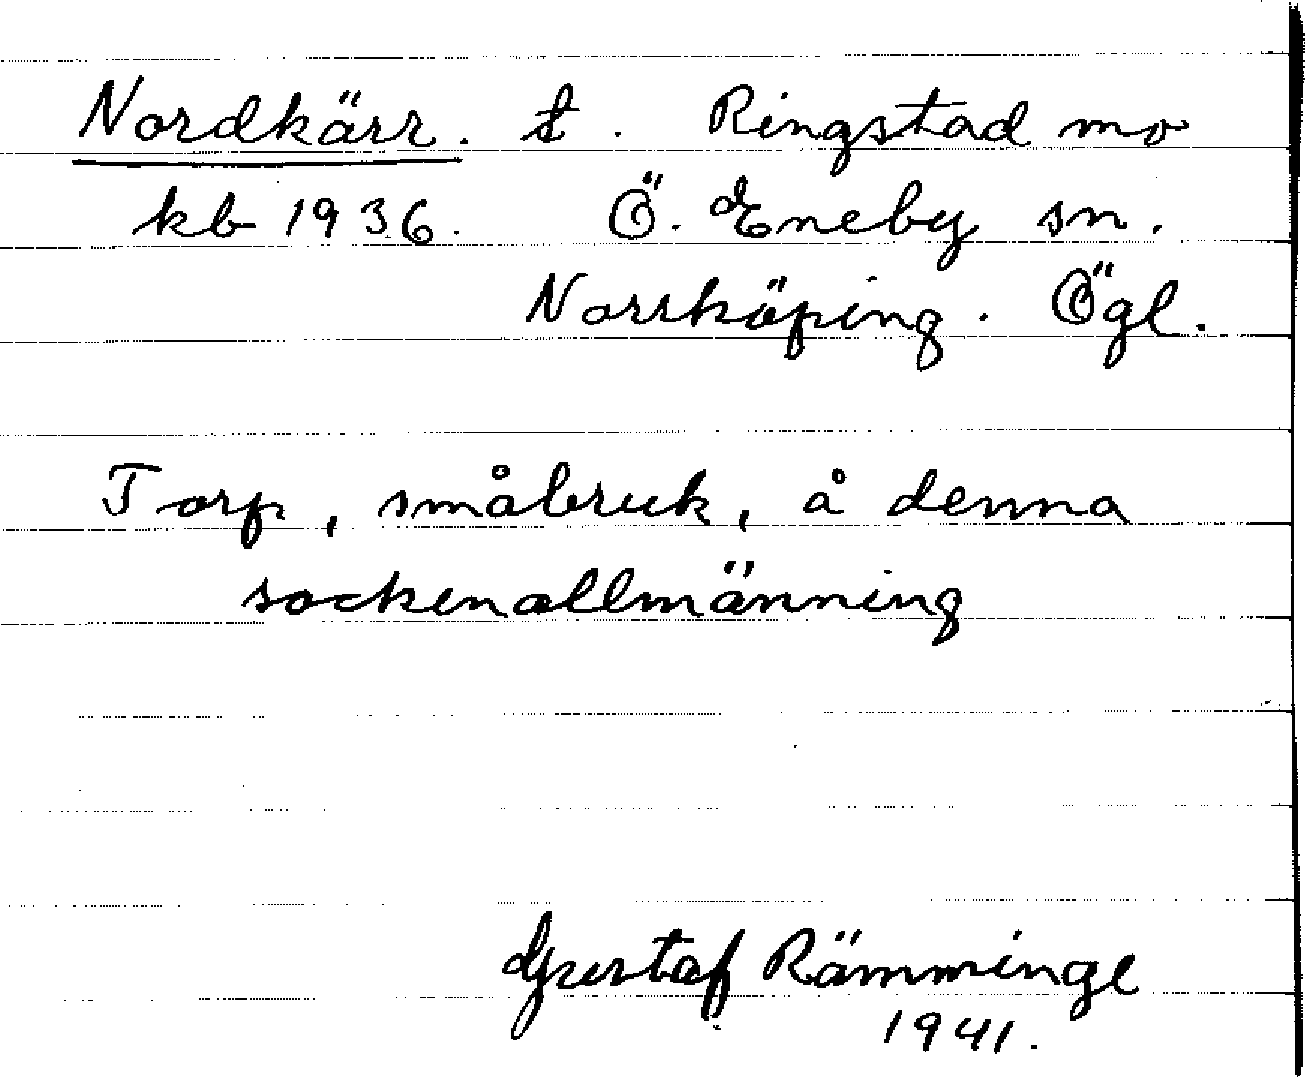 Nordkärr. t. Ringstad mo
kb 1936. Ö. Eneby sn.
Norrköping. Ögl.
Torp, småbruk, å denna
sockenallmänning
Gustaf Rämminge
1941.